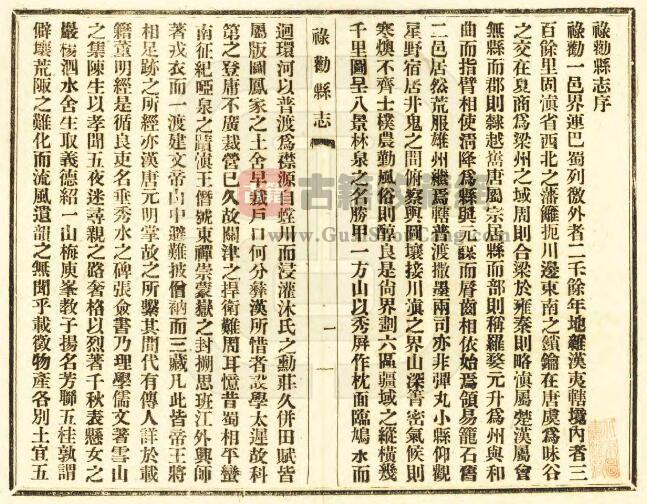 祿勸縣志序
祿勸一邑界連巴蜀列徼外者二千餘年地雜漢夷轄境內者三
百餘里固滇省西北之藩籬扼川邊東南之鎖鑰在唐虞為昧谷
之交在夏商為梁州之域周則合梁於雍秦則略滇屬楚漢屬會
無縣而郡則隸越巂唐屬宗居縣而部則稱羅婺元升為州與和
曲而指臂相使清降為縣與元謀而脣齒相依始為領易籠石舊
二邑居然荒服雄州繼為轄普渡撒墨兩司亦非彈丸小縣仰觀
星野宿居井鬼之間俯察輿圖壤接川滇之界山深箐密氣候則
寒燠不齊士樸農勤風俗則醇良是尙界劃六區疆域之縱橫幾
千里圖呈八景林泉之名勝甲一方山以秀屏作枕面臨鳩水而
祿勸縣志
一
迴環河以普渡為襟源自螳川而浸灌沐氏之勳莊久併田賦皆
屬版圖鳳家之土舍早裁戶口何分彝漢所惜者設學太遲故科
第之登庸不廣裁營已久故關津之捍衛難周耳憶昔蜀相平蠻
南征紀啞泉之蹟滇王僭號東禪崇蒙嶽之封捌思班江外興師
著戎衣而一渡建文帝山中避難披僧衲而三藏凡此皆帝王將
相足跡之所經亦漢唐元明掌故之所繫其間代有傳人詳於載
籍董明經是循良吏名垂秀水之碑張僉書乃理學儒文著雪山
之集陳生以孝聞五夜迷尋親之路奢格以烈著千秋表懸女之
巖楊泗水舍生取義德紹一山梅庚峯教子揚名芳聯五桂孰謂
僻壤荒陬之難化而流風遺韻之無聞乎載徵物產各別土宜五
古籍收藏網
www.GuJiShouCang.com